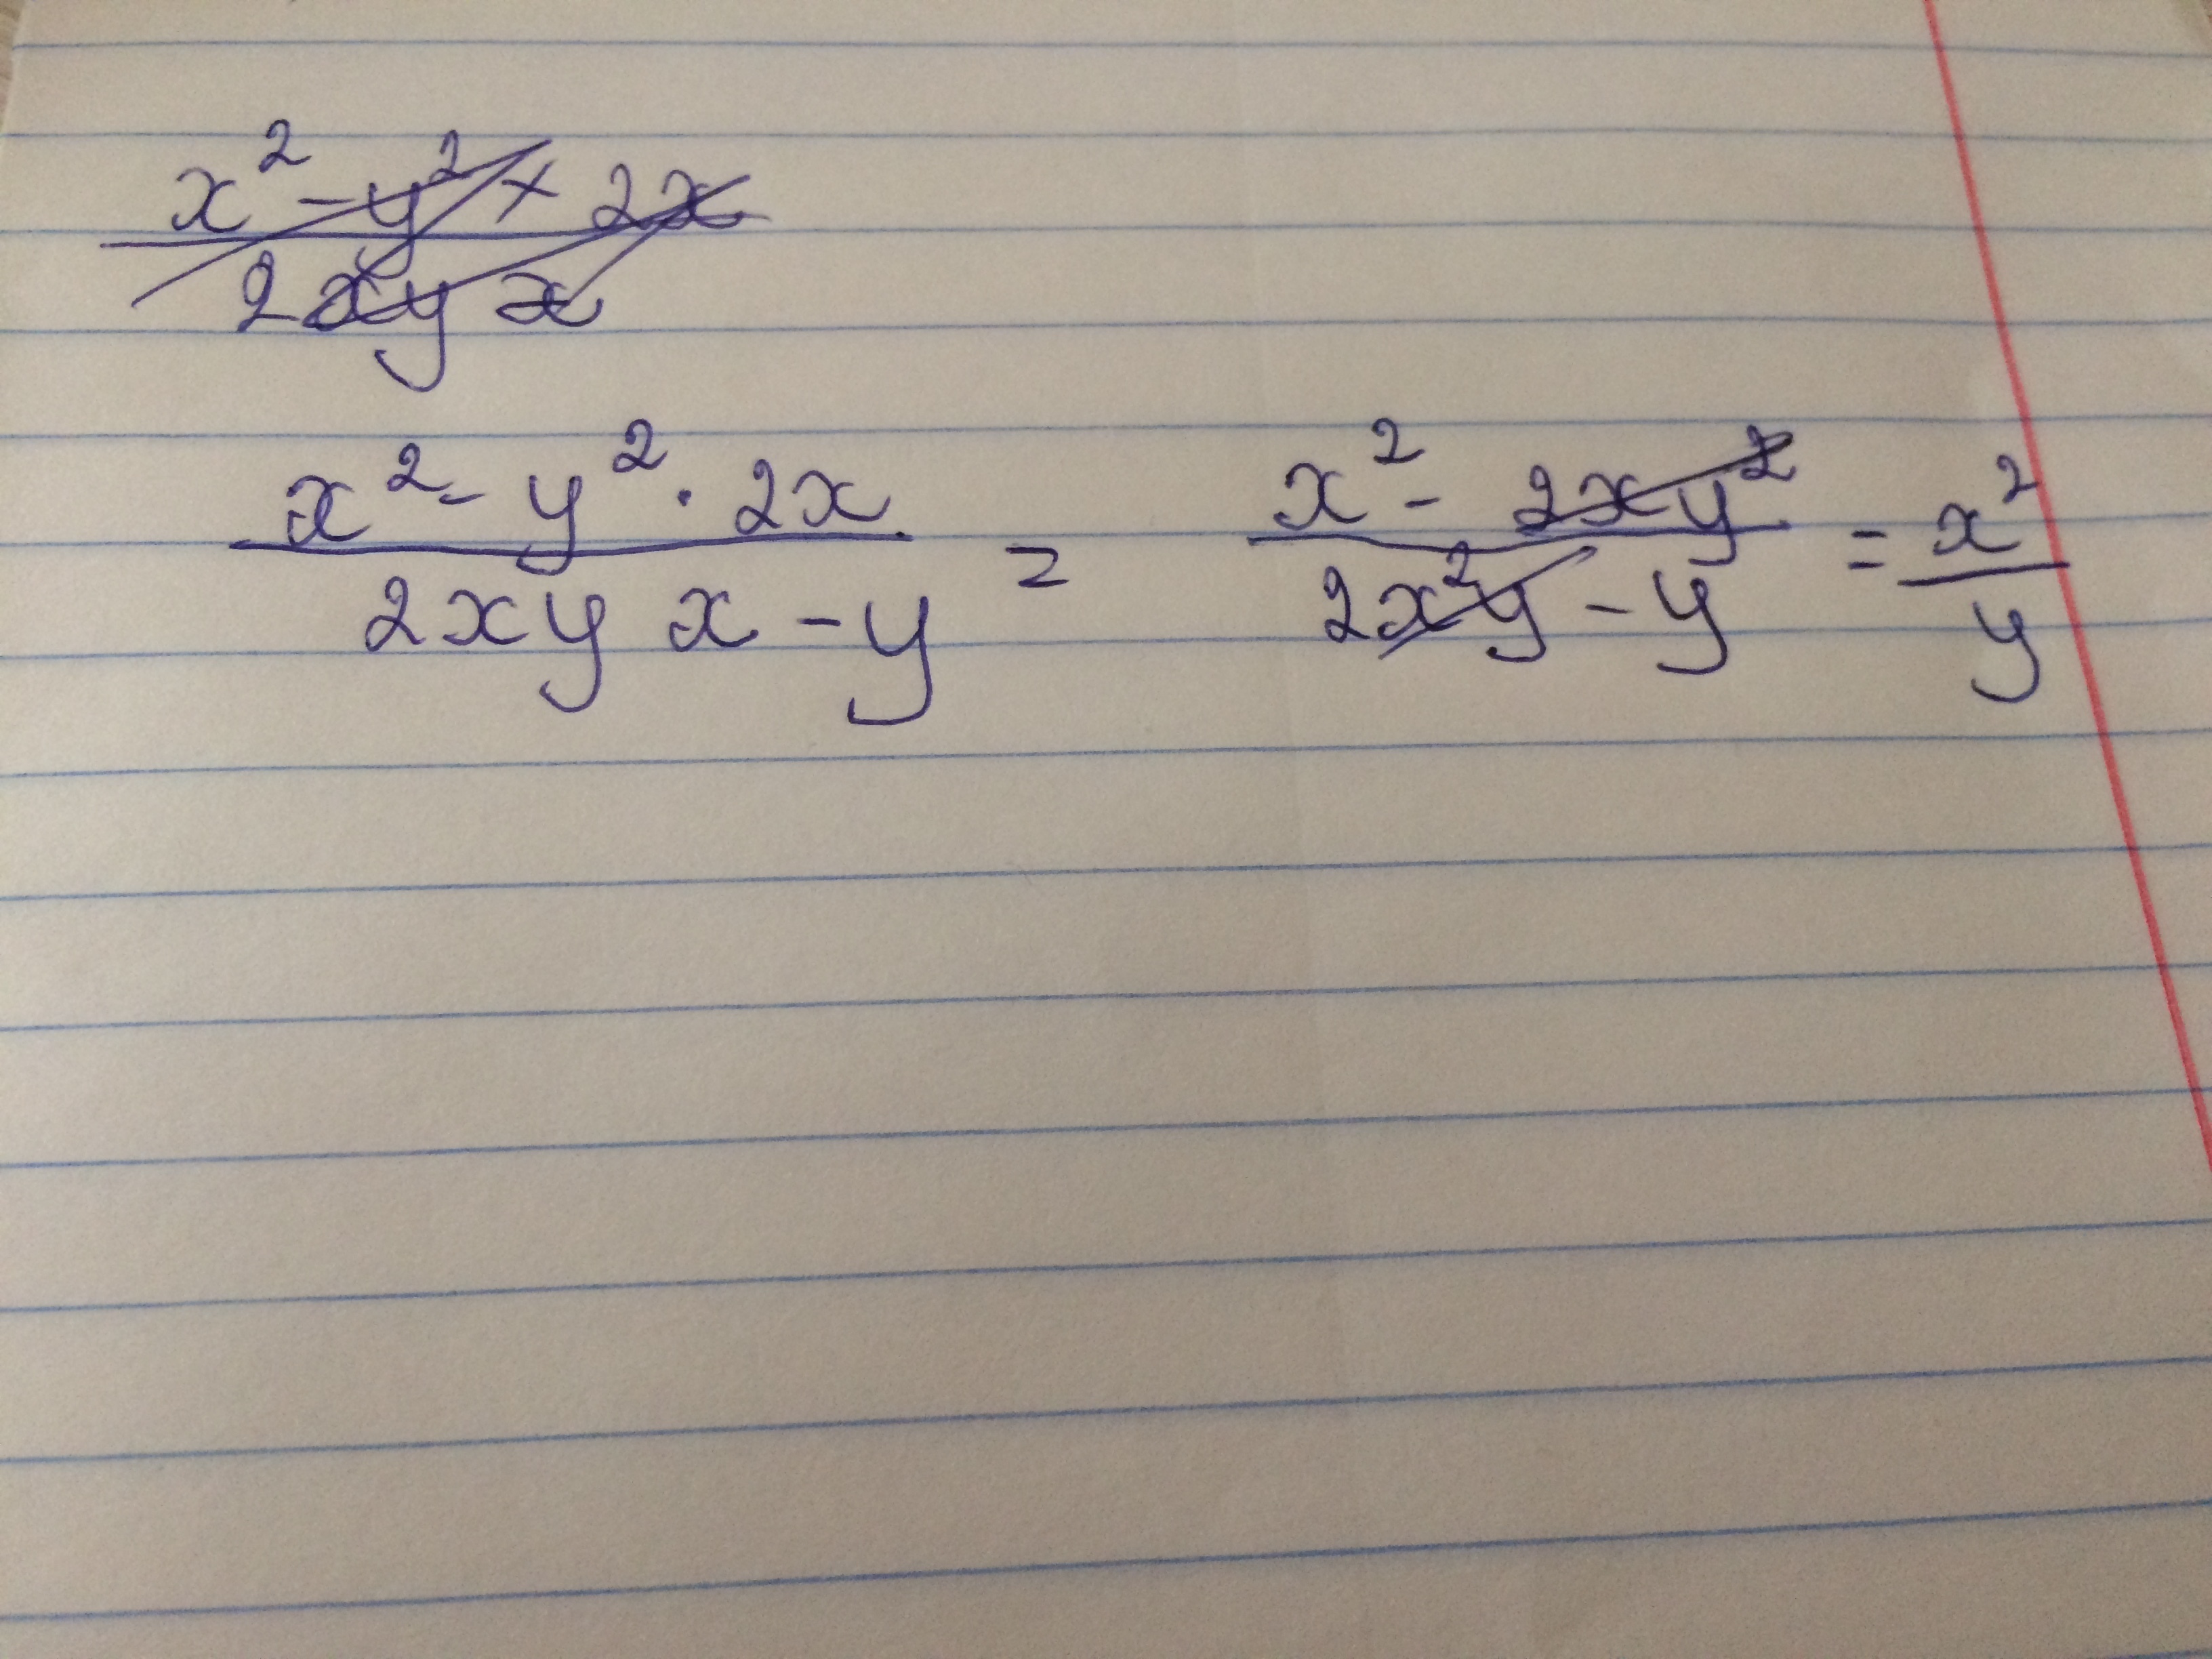 x² - y² × 2x
2xy x
x² - y² · 2x
2xy x - y
=
x² - 2xy²
2x²y - y
=
x²
y